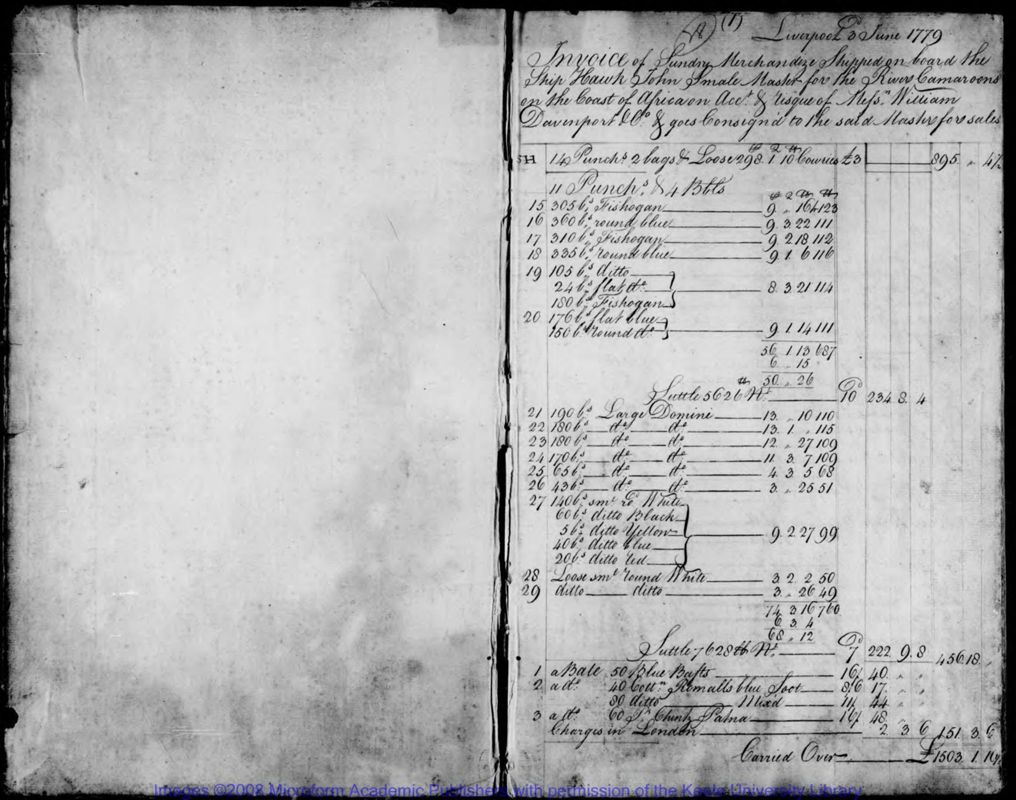 (1) Liverpool 3d June 1779
Invoice of Sundry Merchandize Shipped on board the
Ship Hawk John Smale Mastr for the River Camaroons
on the Coast of Africa on Acct. & risque of Messrs William
Davenport & Co. & goes Consign'd to the said Mastr for sales
SH 14 Punchs 2 bags & Loose 298. 1 10 Cowries £3 895 " 4½
11 Punchs. & 4 Bbls
15 305 bs Fishogan 9 " 16 123
16 360 bs round blue 9 3 22 111
17 310 bs Fishogan 9 2 18 112
18 335 bs round blue 9 1 6 116
19 105 bs ditto
24 bs flat do. 8 3 21 114
180 bs Fishogan
20 176 bs flat blue
150 bs round do. 9 1 14 111
56 1 13 687
6 " 15
50 " 26
Suttle 5626 lb Nt. 10d 234 8 4
21 190 bs Large Domine 13 " 10 110
22 180 bs do do 13 1 " 115
23 180 bs do do 12 " 27 109
24 170 bs do do 11 3 7 109
25 65 bs do do 4 3 5 68
26 43 bs do do 3 " 25 51
27 140 bs sml rd White
60 bs ditto Black
5 bs ditto Yellow 9 2 27 99
40 bs ditto blue
20 bs ditto red
28 Loose sml round White 3 2 2 50
29 ditto ditto 3 " 26 49
74 3 16 760
6 3 4
68 " 12
Suttle 7628 lb Nt. 7d 222 9 8 456 18 "
1 a Bale 50 Blue Bafts 16/ 40 " "
2 a do. 40 Cottn Romalls blue Soot 8/6 17 " "
80 ditto Mixd 11/ 44 " "
3 a do. 60 Ps Chintz Patna 16/ 48 " "
Charges in London 2 3 6 151 3 6
Carried Over £1503 1 10½
Images ©2008 Microform Academic Publishers with permission of the Keele University Library